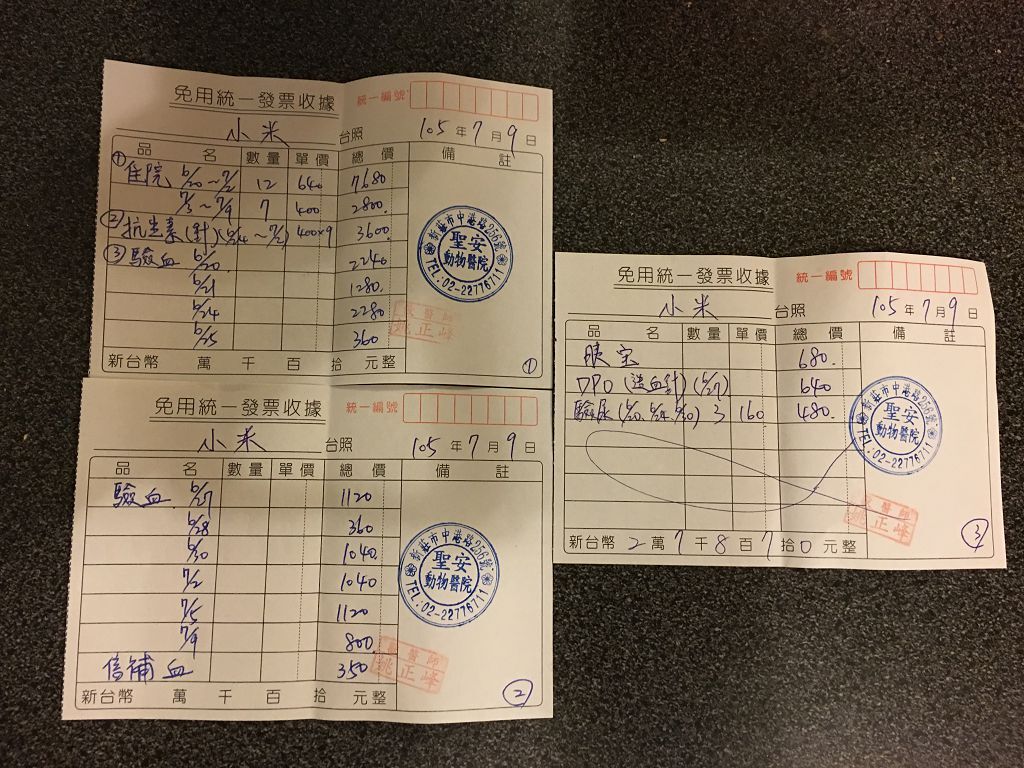 免用統一發票收據 統一編號
小米 台照 105年7月9日
品名 數量 單價 總價 備註
① 住院 6/20~7/2 12 640 7680
7/3~7/9 7 400 2800.
② 抗生素(針)(6/24~7/2) 400×9 3600.
③ 驗血 6/20. 2240
6/21 1280.
6/24 2280
6/25 360
新台幣 萬 千 百 拾 元整
①
新莊市中港路256號
聖安
動物醫院
TEL:02-22776711
獸醫師
姚正峰
免用統一發票收據 統一編號
小米 台照 105年7月9日
品名 數量 單價 總價 備註
驗血 6/27 1120
6/28 360
6/30 1040
7/2 1040
7/5 1120
7/9 800.
倍補血 350
新台幣 萬 千 百 拾 元整
②
新莊市中港路256號
聖安
動物醫院
TEL:02-22776711
獸醫師
姚正峰
免用統一發票收據 統一編號
小米 台照 105年7月9日
品名 數量 單價 總價 備註
胰宝 680.
DPO (造血針) (6/27) 640
驗尿 (6/20. 6/24. 6/30) 3 160 480.
新台幣 2萬7千8百7拾0元整
③
新莊市中港路256號
聖安
動物醫院
TEL:02-22776711
獸醫師
姚正峰